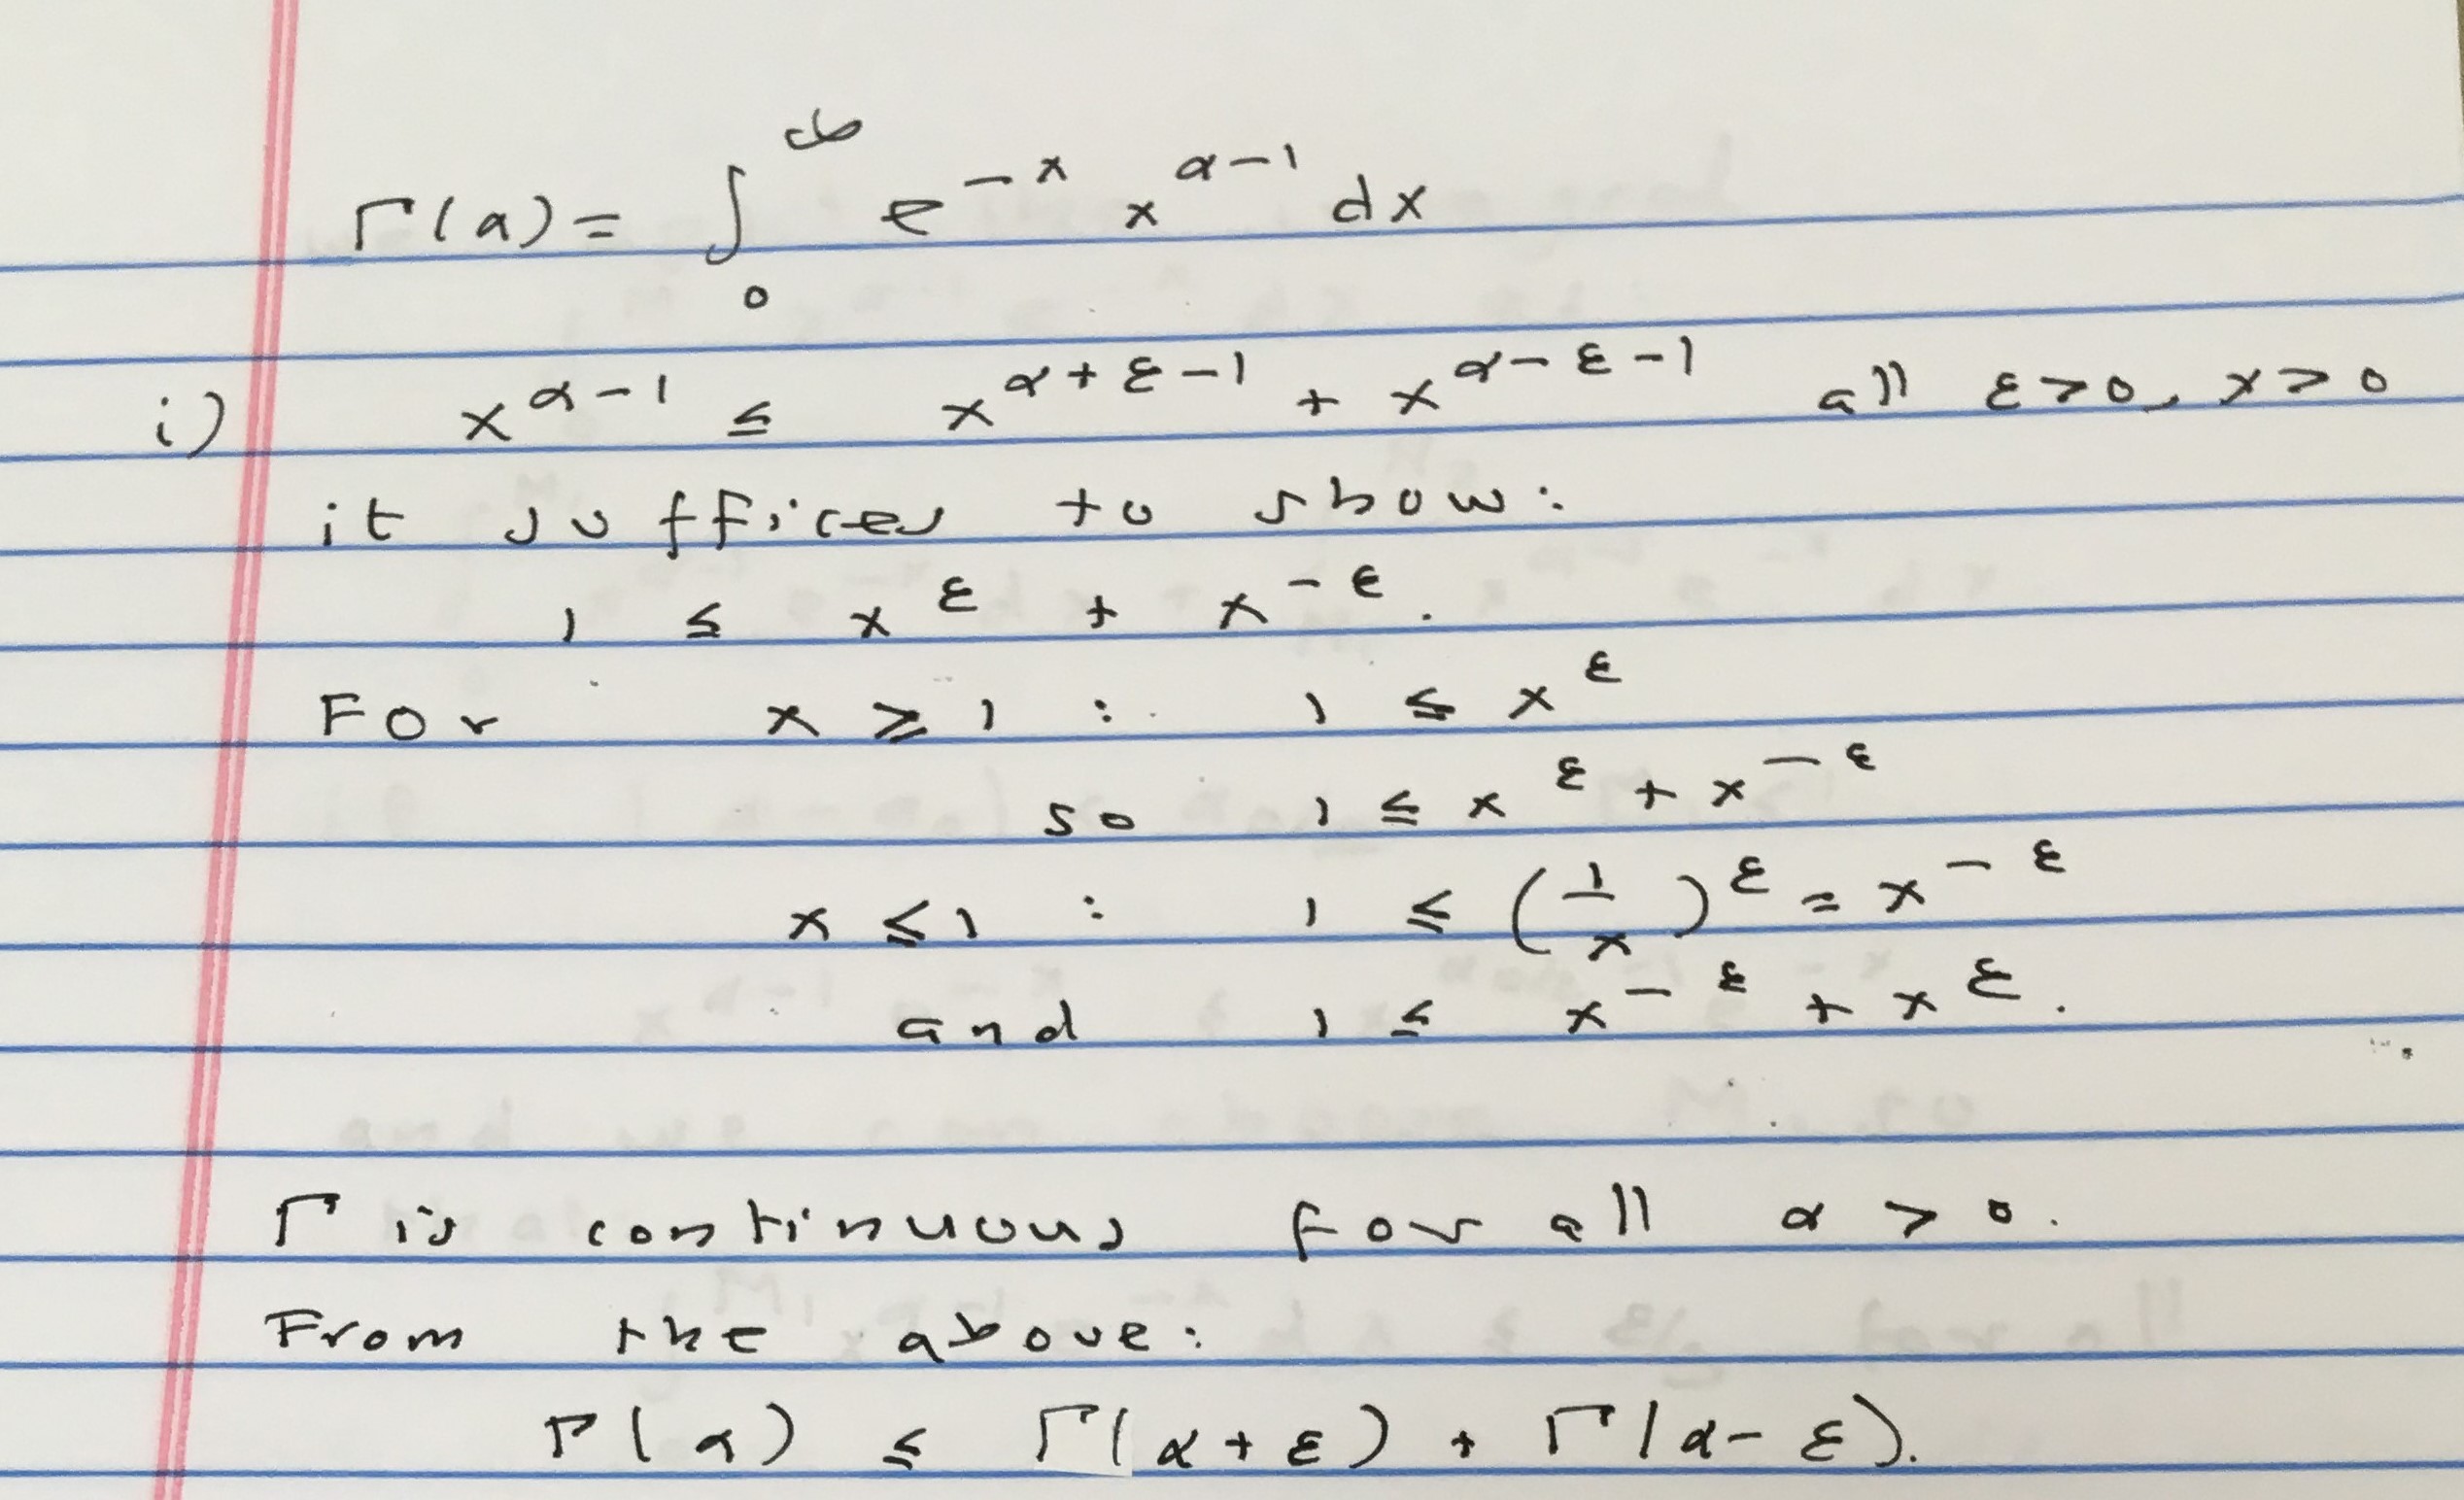 Γ(α) = ∫₀^∞ e^{-x} x^{α-1} dx
i) x^{α-1} ≤ x^{α+ε-1} + x^{α-ε-1} all ε>0, x>0
it suffices to show:
1 ≤ x^ε + x^{-ε}.
For x ≥ 1 : 1 ≤ x^ε
so 1 ≤ x^ε + x^{-ε}
x ≤ 1 : 1 ≤ (1/x)^ε = x^{-ε}
and 1 ≤ x^{-ε} + x^ε.
Γ is continuous for all α > 0.
From the above:
Γ(α) ≤ Γ(α+ε) + Γ(α-ε).